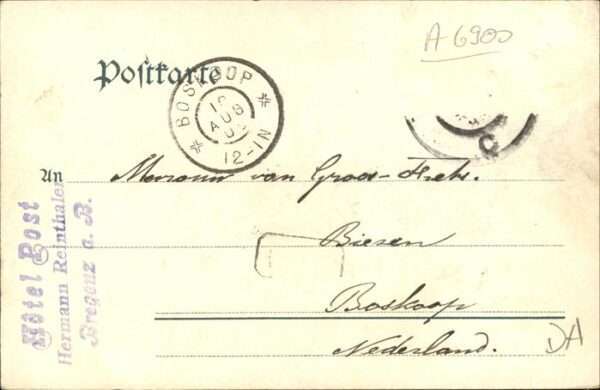 A 6900
Postkarte
BOSKOOP
AUG
12-1N
An Mevrouw van Groos-
Biezen
Boskoop
Nederland.
Hôtel Post
Hermann Reinthaler
Bregenz a. B.
DA